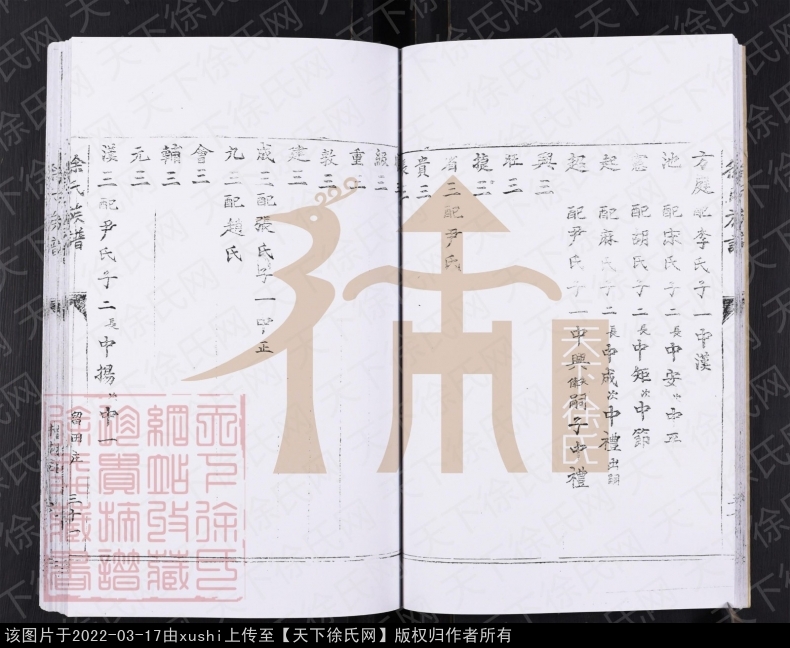 方庭配李氏子一中漢
池 配宗氏子二長中安次中正
憲 配胡氏子二長中矩次中節
起 配麻氏子二長中成次中禮出嗣
超 配尹氏子一中興繼嗣子中禮
興三
旺三
捷三
省三配尹氏
貴三
級三
重三
敦三
建三
成三配張氏子一中正
九三配趙氏
會三
輔三
元三
漢三配尹氏子二長中揚次中一
徐氏族譜
留田庄 三十一
吴楚徐氏
天下徐氏
網站收藏
珍貴捐譜
天下徐氏网
该图片于2022-03-17由xushi上传至【天下徐氏网】版权归作者所有